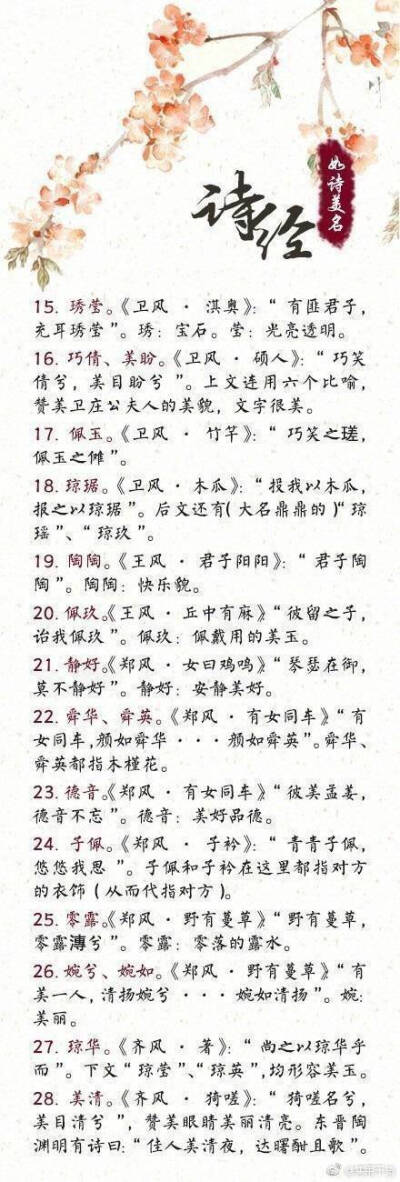 诗经
如诗美名
15. 琇莹。《卫风 · 淇奥》：“ 有匪君子，
充耳琇莹 ”。琇：宝石。莹：光亮透明。
16. 巧倩、美盼。《卫风 · 硕人》：“ 巧笑
倩兮，美目盼兮 ”。上文连用六个比喻，
赞美卫庄公夫人的美貌，文字很美。
17. 佩玉。《卫风 · 竹竿》：“ 巧笑之瑳，
佩玉之傩 ”。
18. 琼琚。《卫风 · 木瓜》：“ 投我以木瓜，
报之以琼琚 ”。后文还有（大名鼎鼎的）“ 琼
瑶 ”、“ 琼玖 ”。
19. 陶陶。《王风 · 君子阳阳》：“ 君子陶
陶 ”。陶陶：快乐貌。
20. 佩玖。《王风 · 丘中有麻》“ 彼留之子，
诒我佩玖 ”。佩玖：佩戴用的美玉。
21. 静好。《郑风 · 女曰鸡鸣》“ 琴瑟在御，
莫不静好 ”。静好：安静美好。
22. 舜华、舜英。《郑风 · 有女同车》“ 有
女同车，颜如舜华 · · · 颜如舜英 ”。舜华、
舜英都指木槿花。
23. 德音。《郑风 · 有女同车》“ 彼美孟姜，
德音不忘 ”。德音：美好品德。
24. 子佩。《郑风 · 子衿》：“ 青青子佩，
悠悠我思 ”。子佩和子衿在这里都指对方
的衣饰（从而代指对方）。
25. 零露。《郑风 · 野有蔓草》“ 野有蔓草，
零露漙兮 ”。零露：零落的露水。
26. 婉兮、婉如。《郑风 · 野有蔓草》“ 有
美一人，清扬婉兮 · · · 婉如清扬 ”。婉：
美丽。
27. 琼华。《齐风 · 著》：“ 尚之以琼华乎
而 ”。下文 “ 琼莹 ”、“ 琼英 ”，均形容美玉。
28. 美清。《齐风 · 猗嗟》：“ 猗嗟名兮，
美目清兮 ”，赞美眼睛美丽清亮。东晋陶
渊明有诗曰：“ 佳人美清夜，达曙酣且歌 ”。